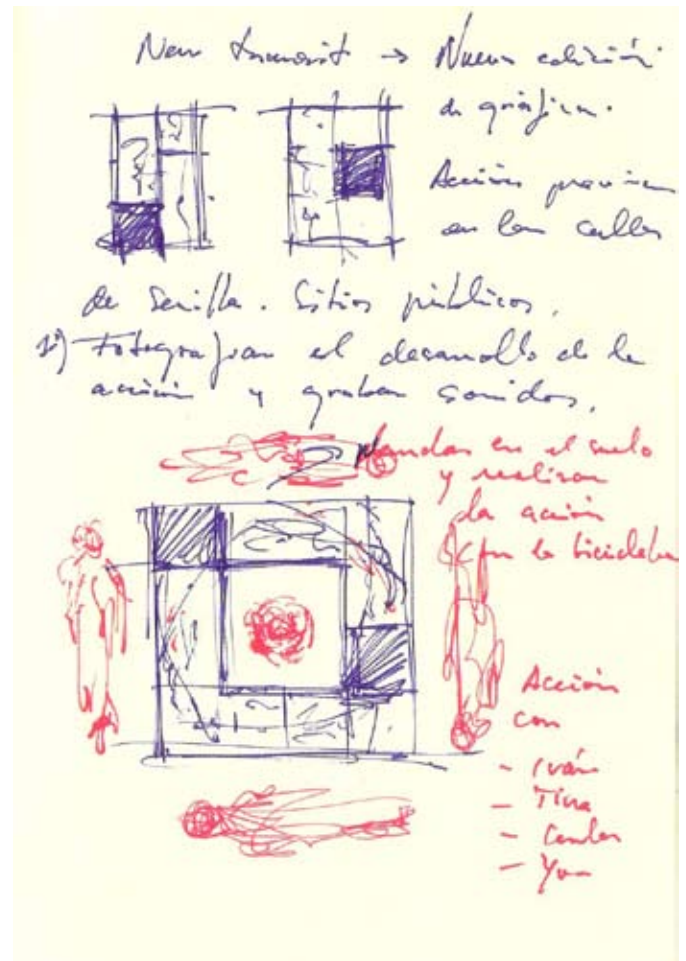 New → Nueva edición
de gráfica.
Acción previa
en las calles
de Sevilla. Sitios públicos.
1º) Fotografiar el desarrollo de la
acción y grabar sonidos.
en el suelo
y realizar
la acción
con la bicicleta
Acción
con
- Iván
- Tina
- Carlos
- Yon